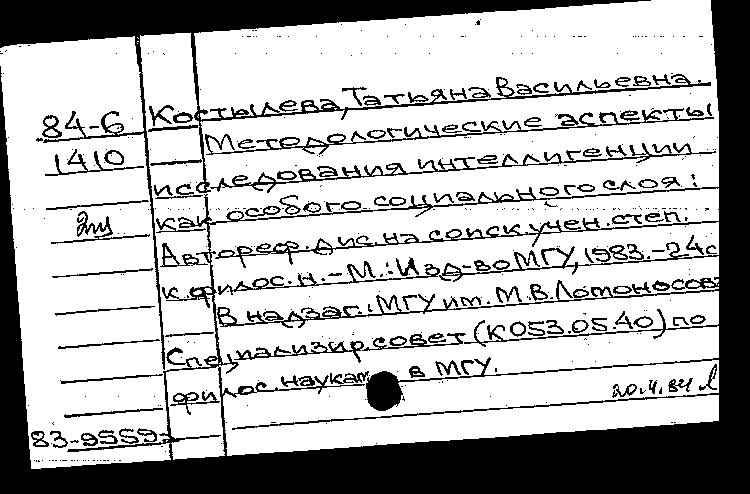 84-6 Костылева, Татьяна Васильевна.
1410 Методологические аспекты
исследования интеллигенции
как особого социального слоя:
Автореф. дис. на соиск. учен. степ.
к. филос. н. - М.: Изд-во МГУ, 1983. - 24с
В надзаг.: МГУ им. М.В. Ломоносова
Специализир. совет (К 053.05.40) по
филос. наукам в МГУ.
20.4.84
83-9559